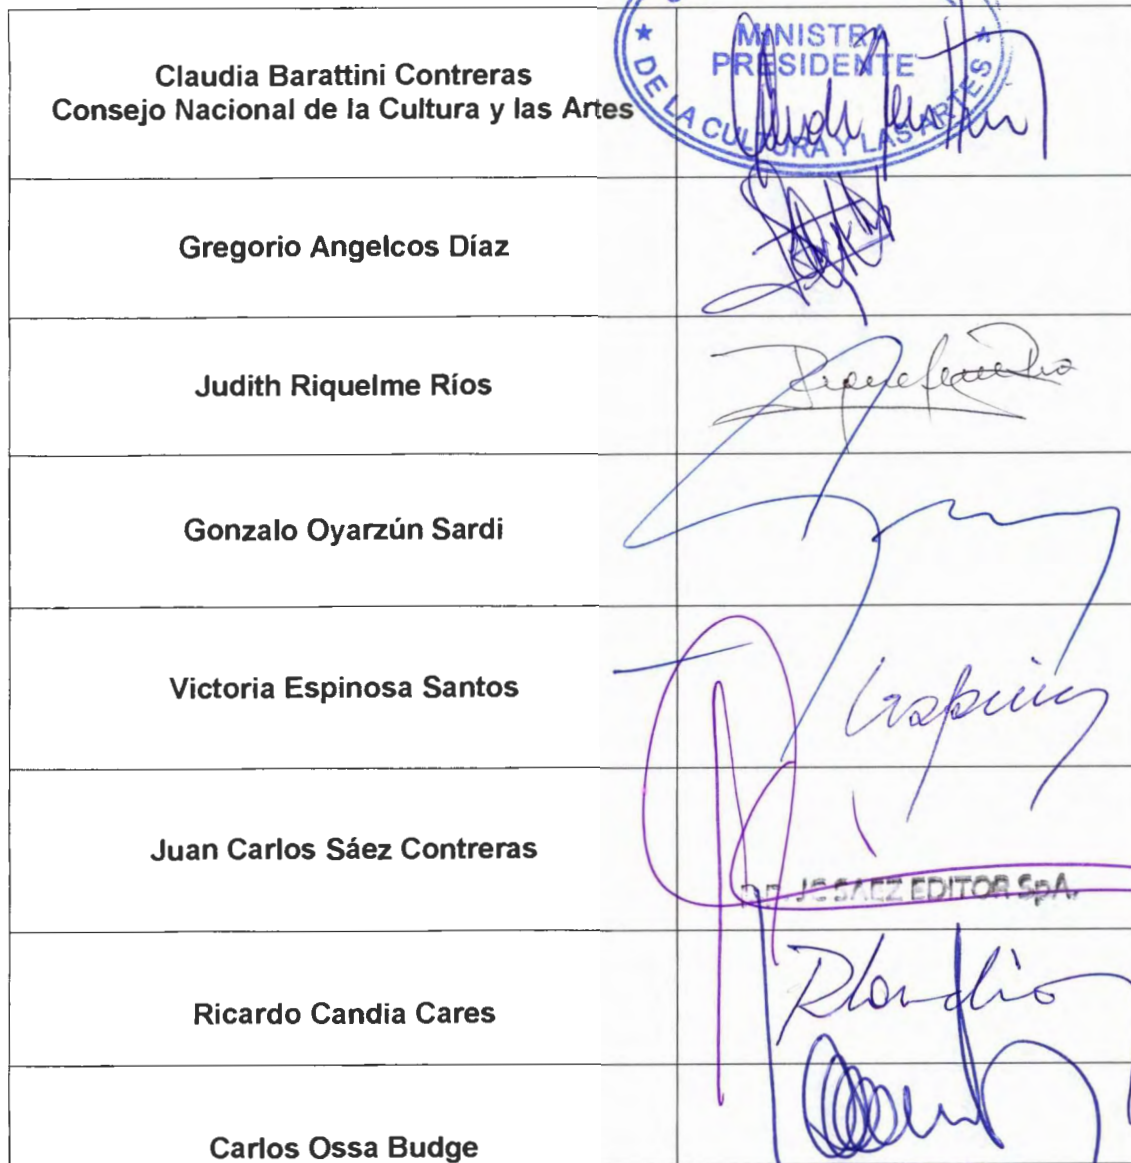 Claudia Barattini Contreras
Consejo Nacional de la Cultura y las Artes
MINISTRA
PRESIDENTE
DE LA CULTURA Y LAS ARTES
Gregorio Angelcos Díaz
Judith Riquelme Ríos
Gonzalo Oyarzún Sardi
Victoria Espinosa Santos
Juan Carlos Sáez Contreras
JC SAEZ EDITOR SpA.
Ricardo Candia Cares
Carlos Ossa Budge